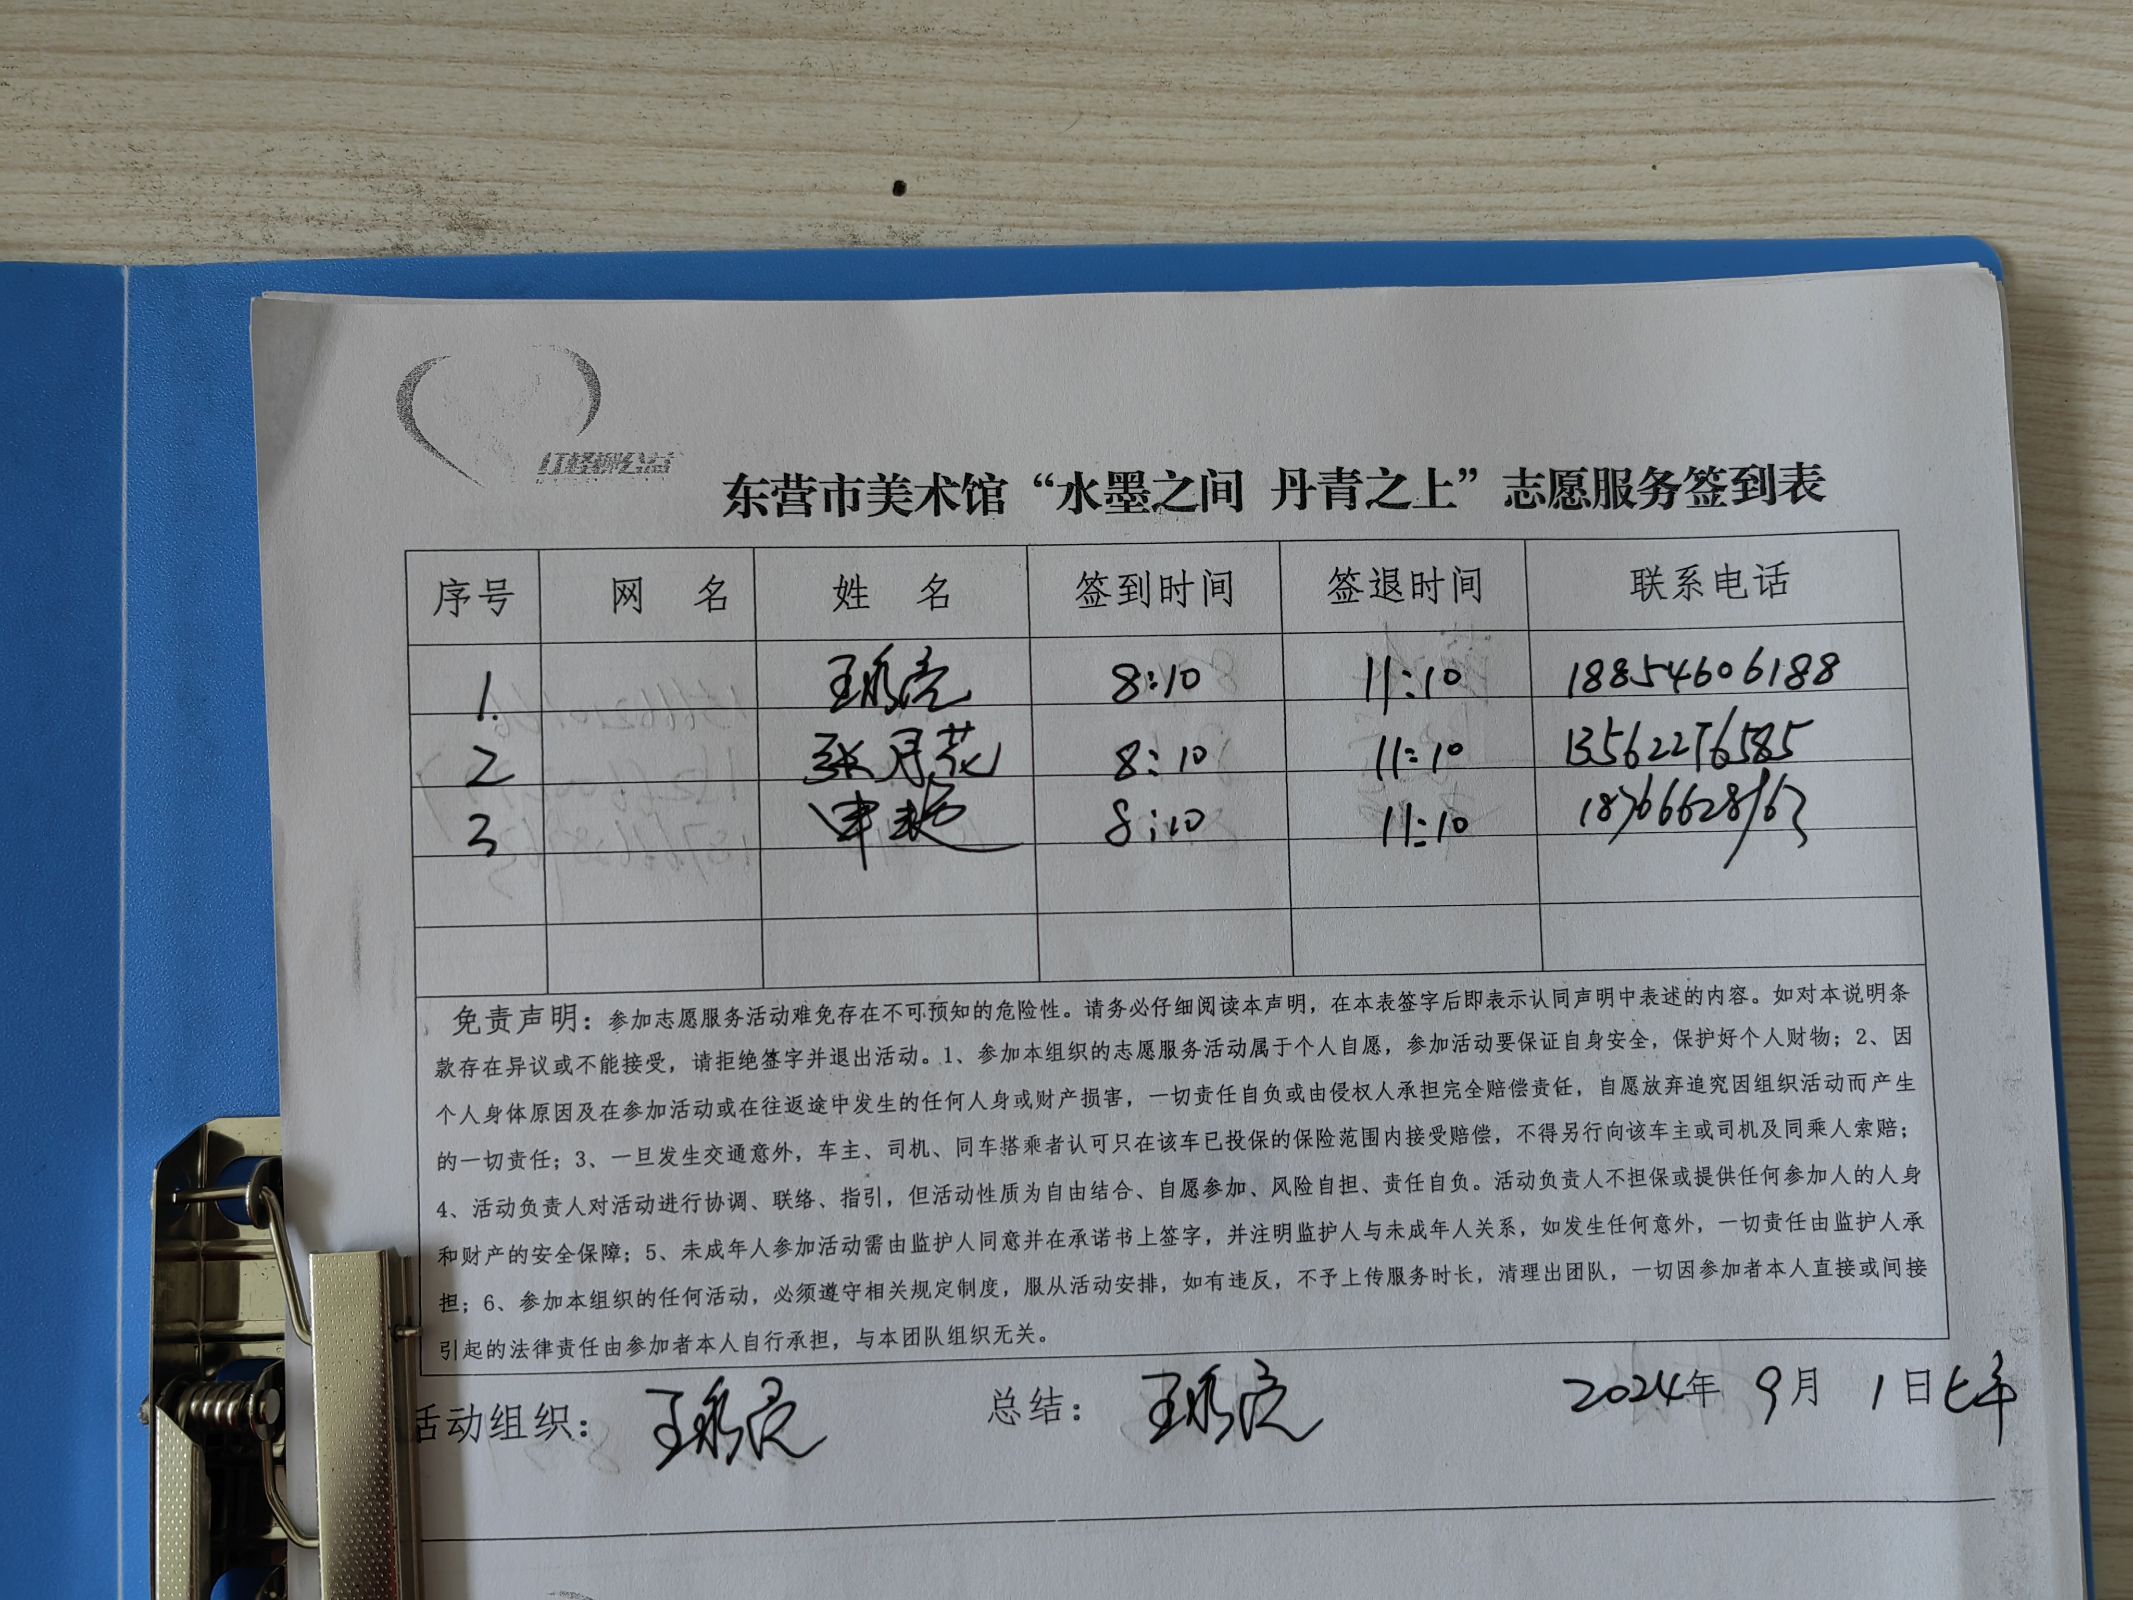 东营市美术馆“水墨之间 丹青之上”志愿服务签到表
序号 网 名 姓 名 签到时间 签退时间 联系电话
1. 王永亮 8:10 11:10 18854606188
2 张月花 8:10 11:10 13562276585
3 申艳 8:10 11:10 18766628763
免责声明：参加志愿服务活动难免存在不可预知的危险性。请务必仔细阅读本声明，在本表签字后即表示认同声明中表述的内容。如对本说明条
款存在异议或不能接受，请拒绝签字并退出活动。1、参加本组织的志愿服务活动属于个人自愿，参加活动要保证自身安全，保护好个人财物；2、因
个人身体原因及在参加活动或在往返途中发生的任何人身或财产损害，一切责任自负或由侵权人承担完全赔偿责任，自愿放弃追究因组织活动而产生
的一切责任；3、一旦发生交通意外，车主、司机、同车搭乘者认可只在该车已投保的保险范围内接受赔偿，不得另行向该车主或司机及同乘人索赔；
4、活动负责人对活动进行协调、联络、指引，但活动性质为自由结合、自愿参加、风险自担、责任自负。活动负责人不担保或提供任何参加人的人身
和财产的安全保障；5、未成年人参加活动需由监护人同意并在承诺书上签字，并注明监护人与未成年人关系，如发生任何意外，一切责任由监护人承
担；6、参加本组织的任何活动，必须遵守相关规定制度，服从活动安排，如有违反，不予上传服务时长，清理出团队，一切因参加者本人直接或间接
引起的法律责任由参加者本人自行承担，与本团队组织无关。
活动组织： 王永亮 总结： 王永亮 2024年 9月 1日上午